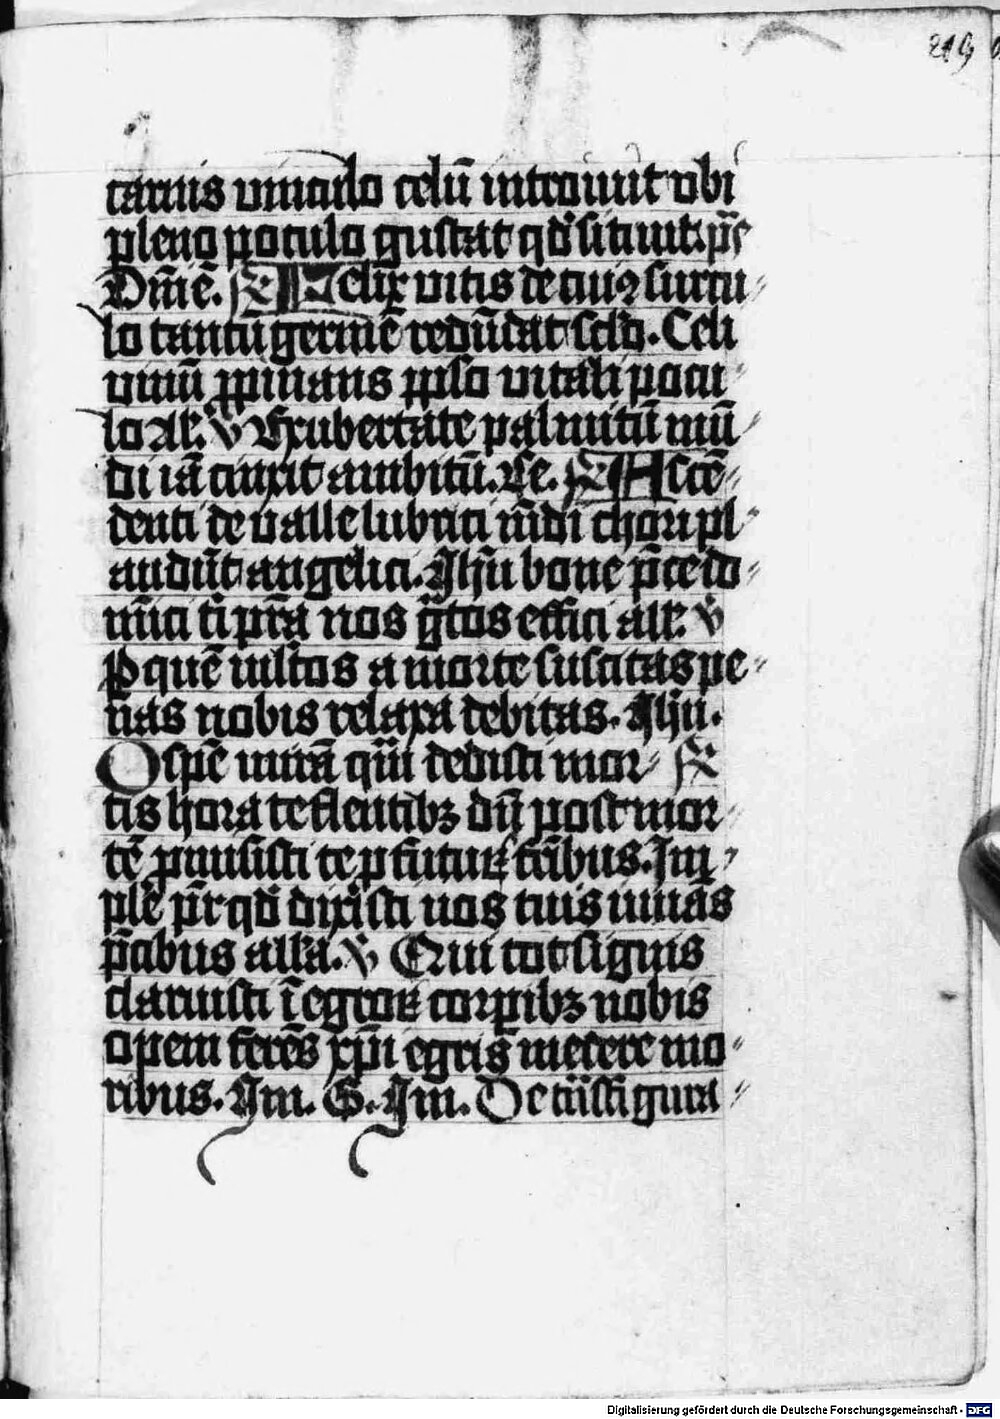 219
carnis vinculo celū introiuit vbi
pleno poculo gustat qd' sitiuit. ps̄
Om̄ē. R Felix vitis de cuiꝰ surcu⸗
lo tantū germē redūdat sclo. Celi
vinū ꝓpinans ppl'o vitali pocu⸗
lo Al'. v Vbertate palmitū mū⸗
di iā cinxit ambitū. Ce. R Ascē⸗
denti de valle lubrici mūdi chori pl⸗
audūt angelici. Ihū bone p̄ce do⸗
mīci tī pr̄ia nos g̃tos effici all'. v
P quē iustos a morte suscitas pe⸗
nas nobis relaxa debitas. Ihū.
O spē mirā quā dedisti mor⸗ R
tis hora te flentibꝫ dū post mor⸗
tē ꝓmisisti te ꝓfuturꝝ frībus. Im⸗
plē pr̄ qd' dixisti nos tuis iuuās
p̄cibus all'a. v Qui tot signis
claruisti ī egroꝝ corpībꝫ nobis
opem ferēs xp̄i egris medere mo⸗
ribus. Im. G. Im. De
Digitalisierung gefördert durch die Deutsche Forschungsgemeinschaft - DFG